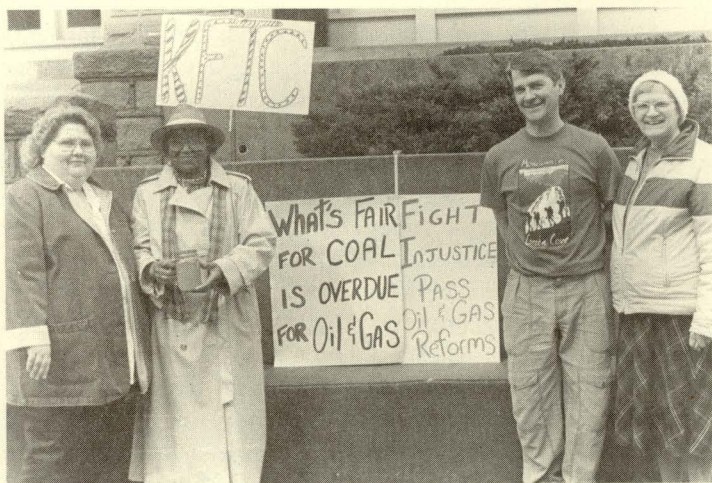 KFTC
WHAT'S FAIR
FOR COAL
IS OVERDUE
FOR Oil & GAS
FIGHT
INJUSTICE
PASS
Oil & GAS
Reforms